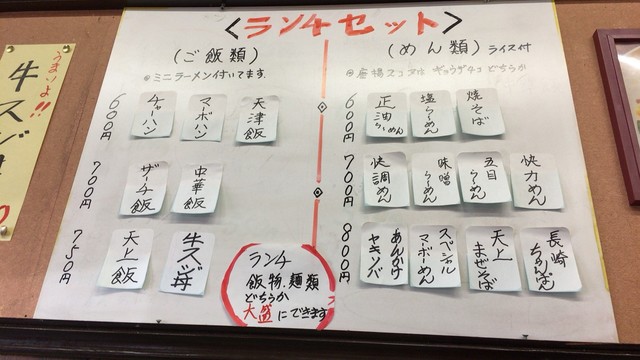 <ランチセット>
(ご飯類)
◎ミニラーメン付いてます。
600円
チャーハン
マーボハン
天津飯
700円
ザーサ飯
中華飯
750円
天上飯
牛スジ丼
(めん類)ライス付
600円
正油らーめん
塩らーめん
焼そば
700円
快調めん
味噌らーめん
五目らーめん
快力めん
800円
あんかけヤキソバ
スペシャルマーボーめん
天上まぜそば
長崎ちゃんぽん
ランチ
飯物.麺類
どちらか
大盛にできます
うまいよ!!
牛スジ